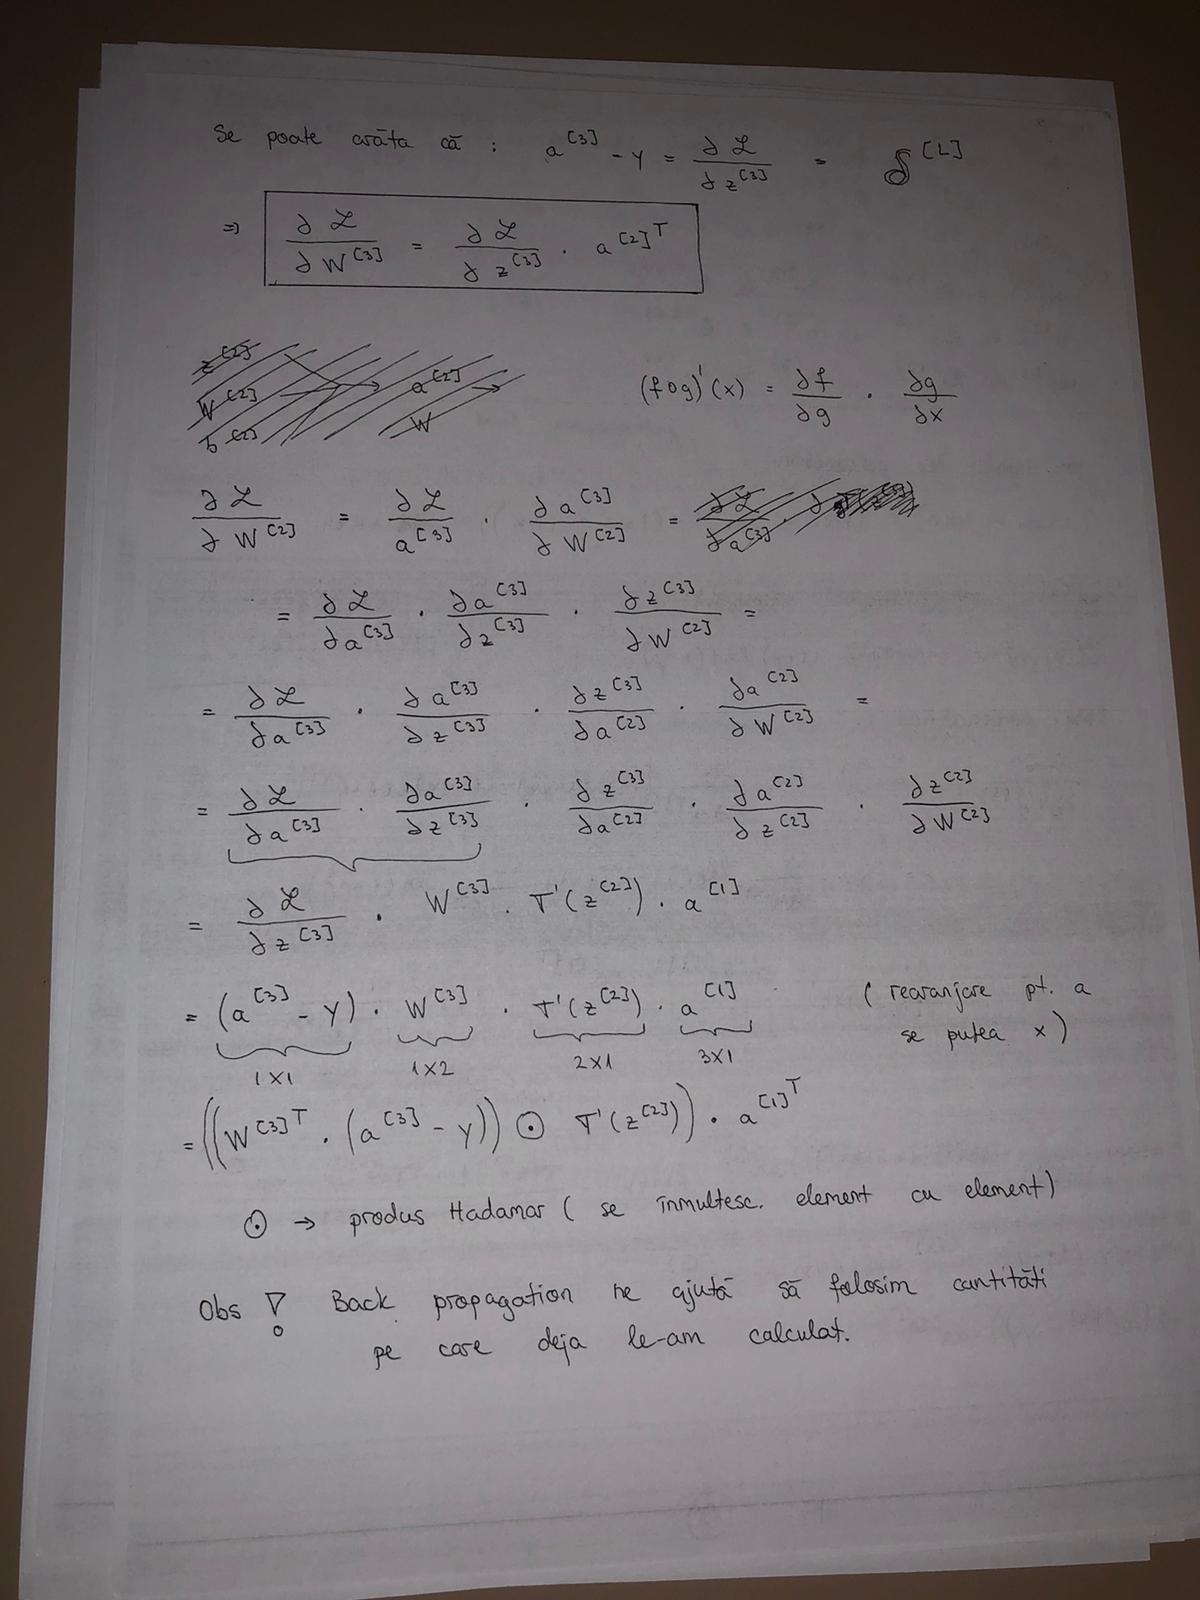 Se poate arăta că : a^[3] - y = ∂ℒ / ∂z^[3] = δ^[L]
=> ∂ℒ / ∂W^[3] = ∂ℒ / ∂z^[3] · a^[2]T
z^[2]
W^[2] a^[2]
b^[2] W
(f∘g)'(x) = ∂f / ∂g · ∂g / ∂x
∂ℒ / ∂W^[2] = ∂ℒ / a^[3] · ∂a^[3] / ∂W^[2] = ∂ℒ / ∂a^[3] ·
= ∂ℒ / ∂a^[3] · ∂a^[3] / ∂z^[3] · ∂z^[3] / ∂W^[2] =
= ∂ℒ / ∂a^[3] · ∂a^[3] / ∂z^[3] · ∂z^[3] / ∂a^[2] · ∂a^[2] / ∂W^[2] =
= ∂ℒ / ∂a^[3] · ∂a^[3] / ∂z^[3] · ∂z^[3] / ∂a^[2] · ∂a^[2] / ∂z^[2] · ∂z^[2] / ∂W^[2]
= ∂ℒ / ∂z^[3] · W^[3] · T'(z^[2]) · a^[1]
= (a^[3] - y) · W^[3] · T'(z^[2]) · a^[1] (rearanjare pt. a
se putea x)
1x1 1x2 2x1 3x1
= ((W^[3]T · (a^[3] - y)) ⊙ T'(z^[2])) · a^[1]T
⊙ → produs Hadamar ( se înmultesc. element cu element)
Obs ! Back propagation ne ajută să folosim cantităti
pe care deja le-am calculat.